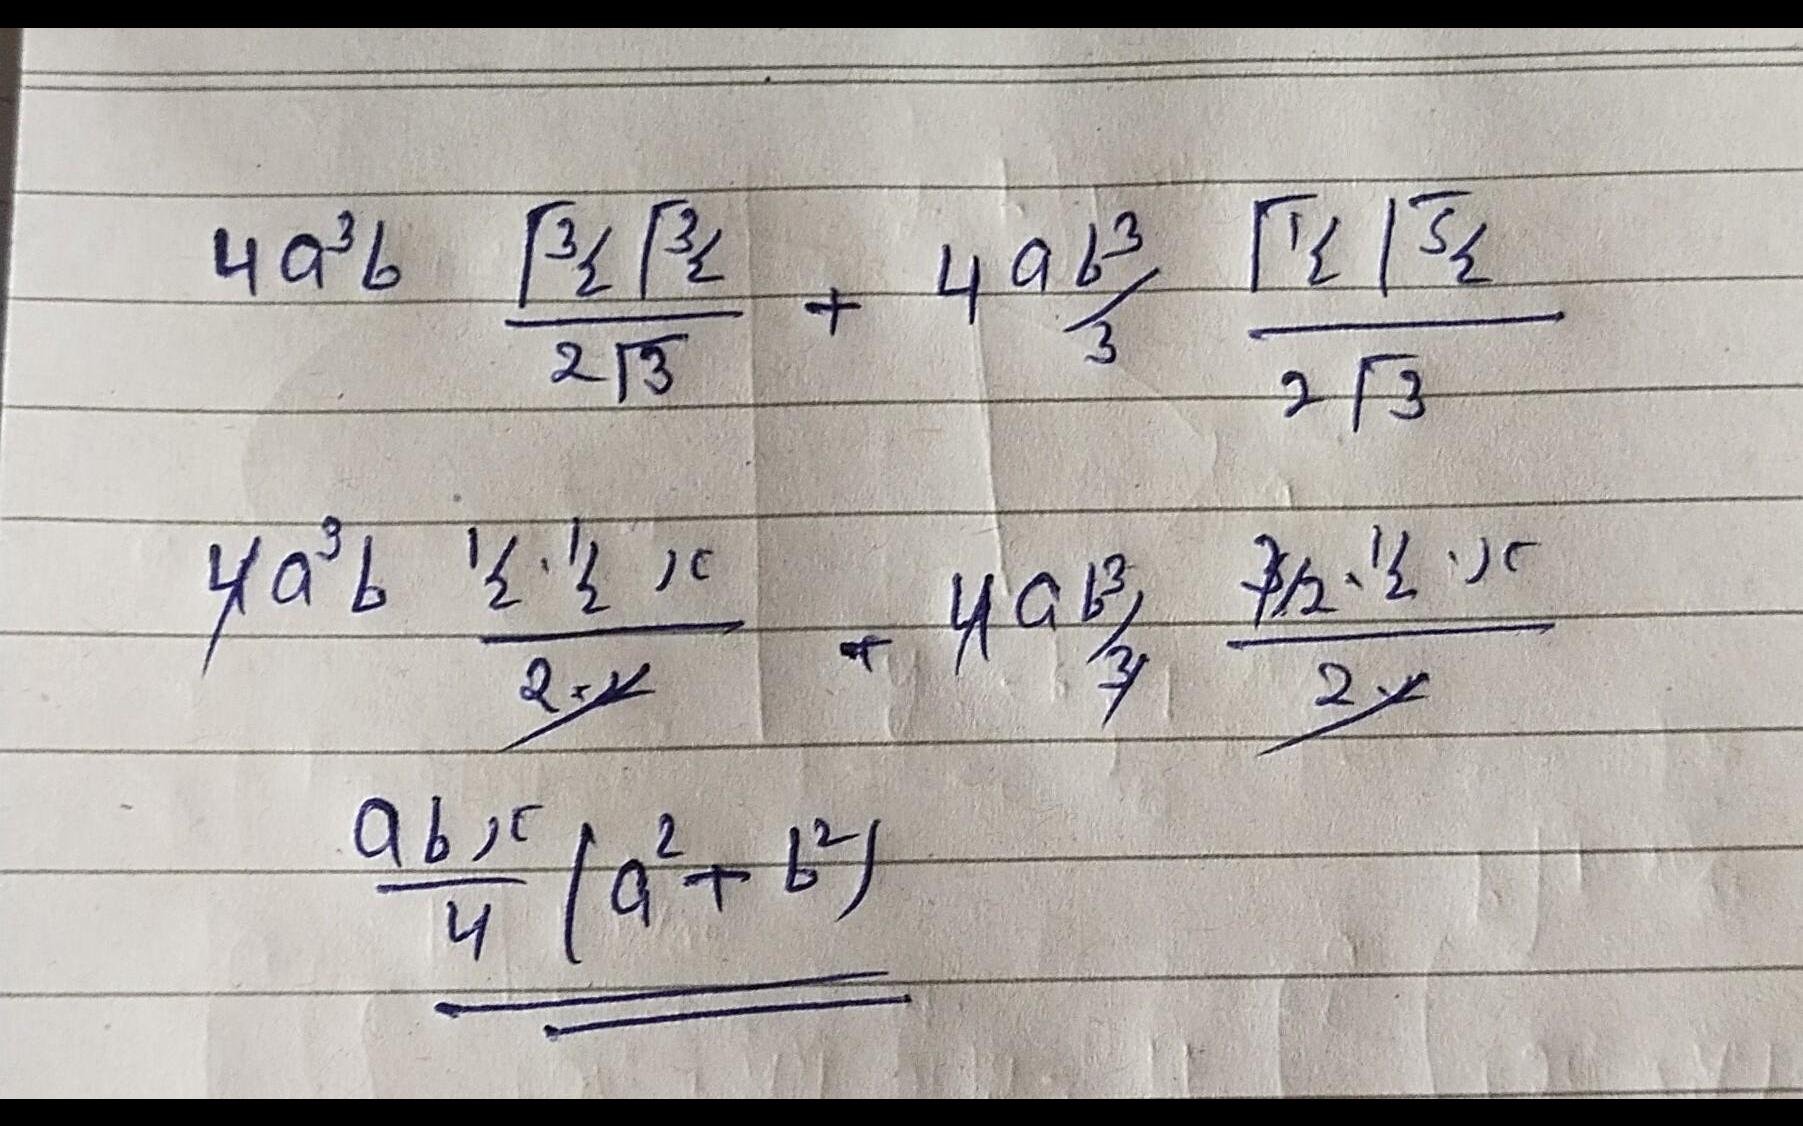 4a³b (Γ3/2 Γ3/2)/(2Γ3) + 4ab³/3 (Γ1/2 Γ5/2)/(2Γ3)
4a³b (1/2 · 1/2 π)/(2·2) + 4ab³/3 (3/2 · 1/2 · π)/(2·2)
abπ/4 (a² + b²)